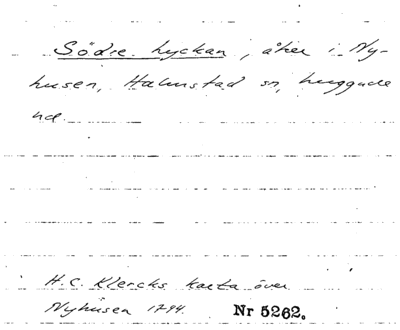 Södre hyckan, åker i Ny-
husen, Halmstad sn, huggude
hd.
H.C. Klercks karta över
Nyhusen 1794. Nr 5262.